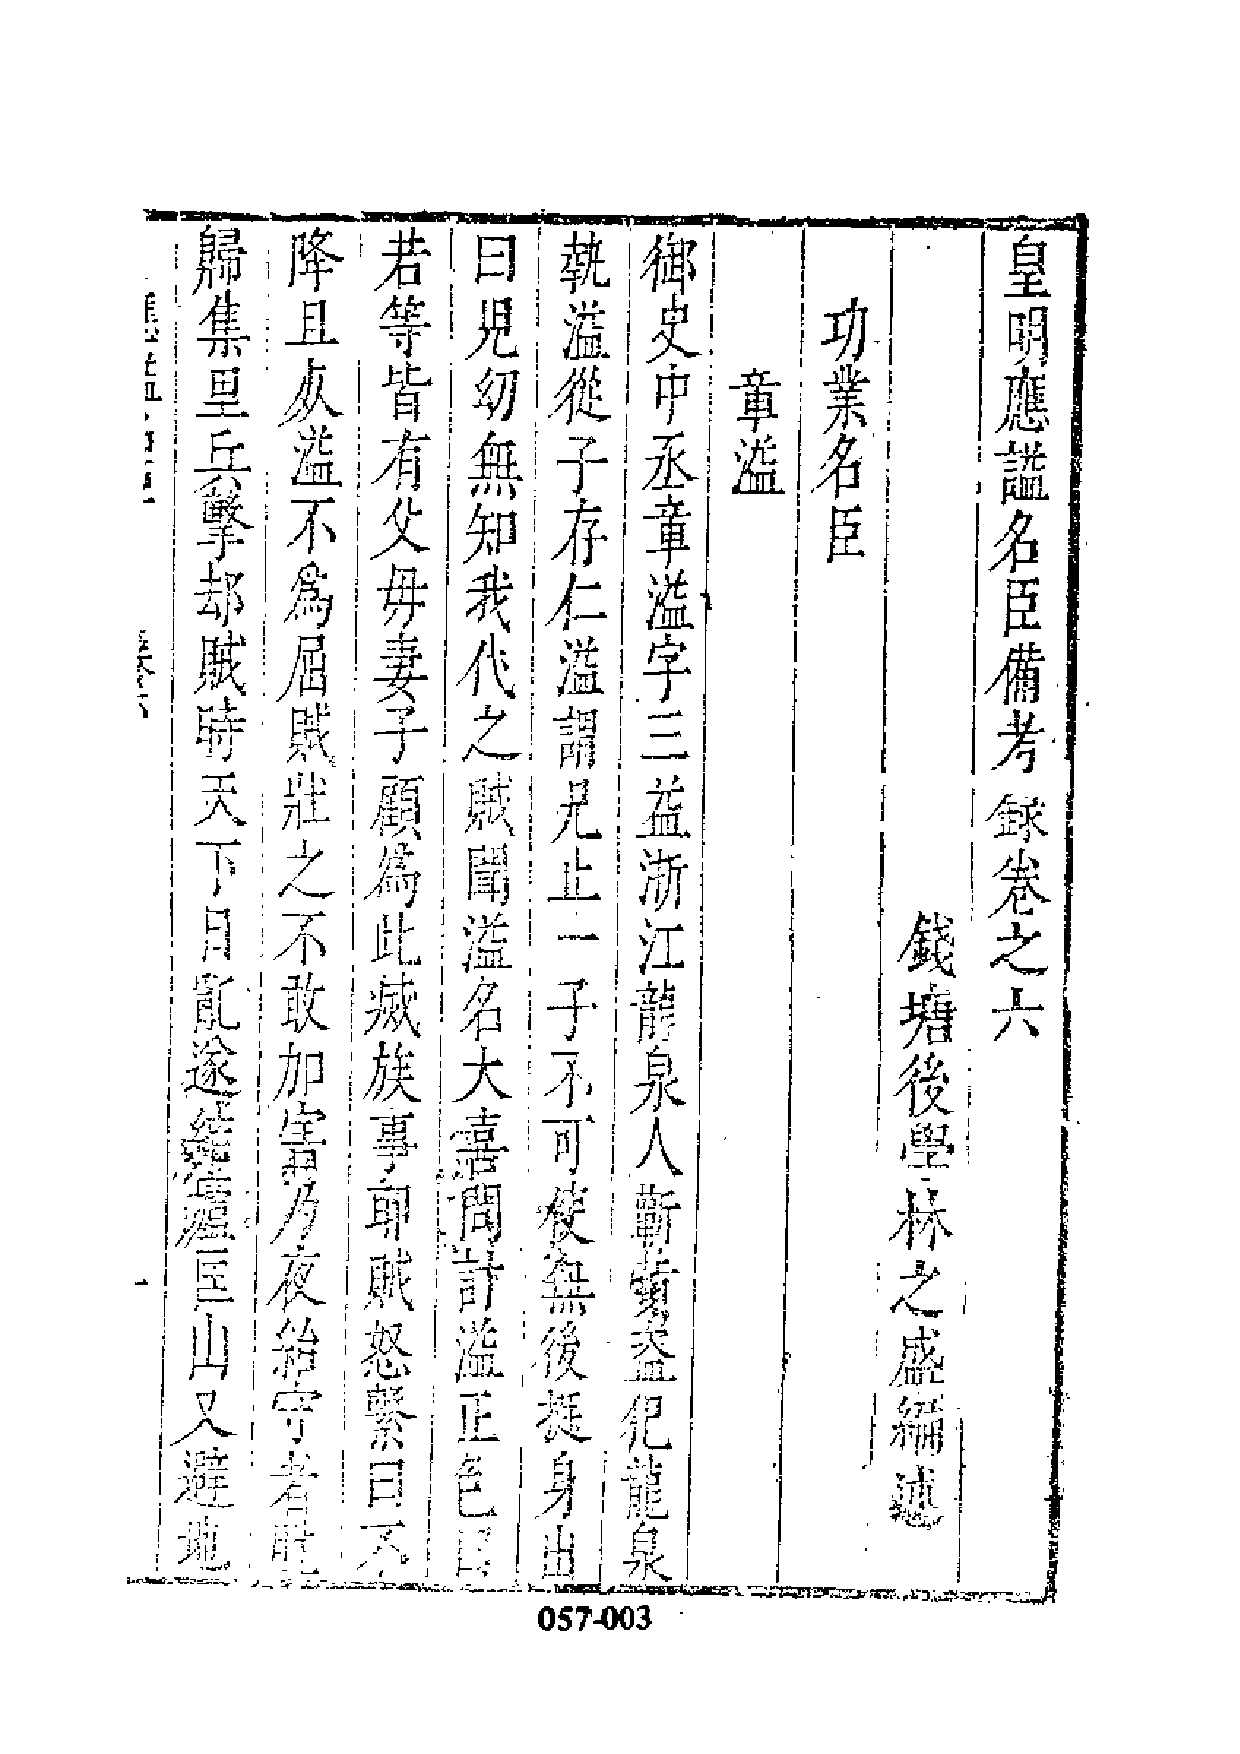 皇明應諡名臣備考錄卷之六
錢塘後學林之盛編述
功業名臣
章溢
御史中丞章溢字三益浙江龍泉人蘄黃盜犯龍泉
執溢從子存仁溢謂兄止一子不可使無後挺身出
曰兒幼無知我代之賊聞溢名大喜問計溢正色曰
若等皆有父母妻子顧為此滅族事耶賊怒繫曰不
降且灰溢不為屈賊壯之不敢加害乃夜紿守者脫
歸集里兵擊却賊時天下日亂遂結廬匡山又避地
應諡名臣 卷六 一
057-003